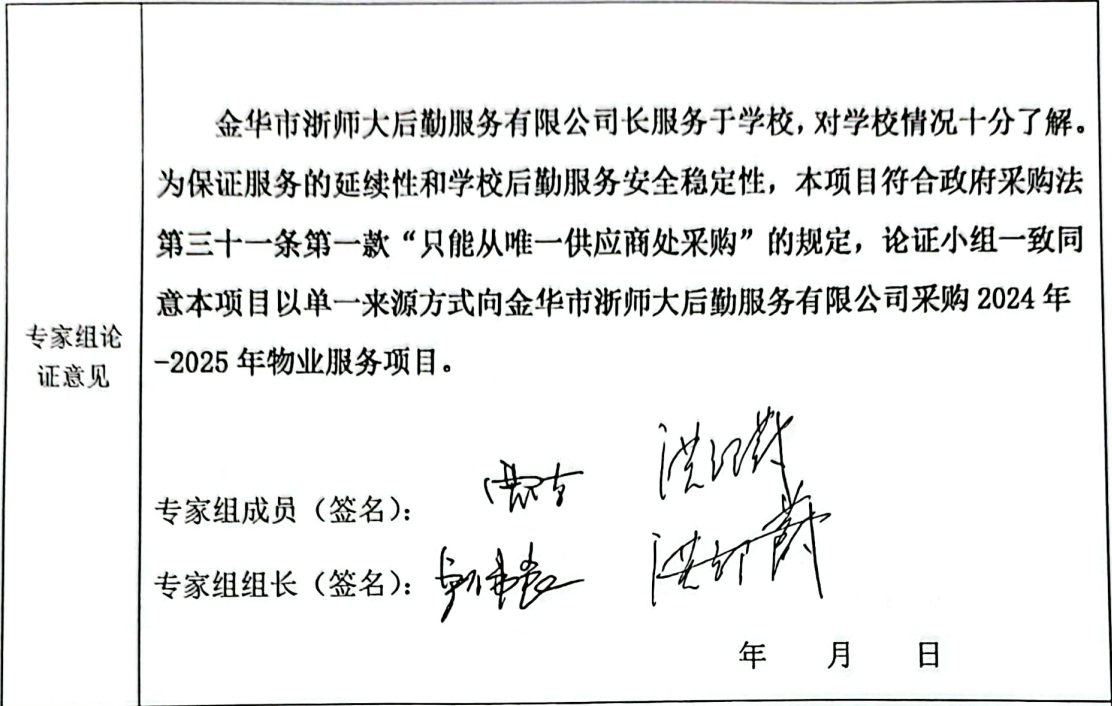 金华市浙师大后勤服务有限公司长服务于学校，对学校情况十分了解。
为保证服务的延续性和学校后勤服务安全稳定性，本项目符合政府采购法
第三十一条第一款“只能从唯一供应商处采购”的规定，论证小组一致同
意本项目以单一来源方式向金华市浙师大后勤服务有限公司采购 2024 年
-2025 年物业服务项目。
专家组论
证意见
专家组成员（签名）：
专家组组长（签名）：
年 月 日